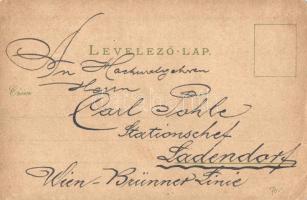 LEVELEZŐ-LAP.
An
Herrn
Carl Pohle
Stationschef
Ladendorf
Wien-Brünner Linie